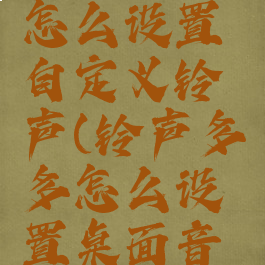 怎么设置
自定义铃
声(铃声多
多怎么设
置桌面音